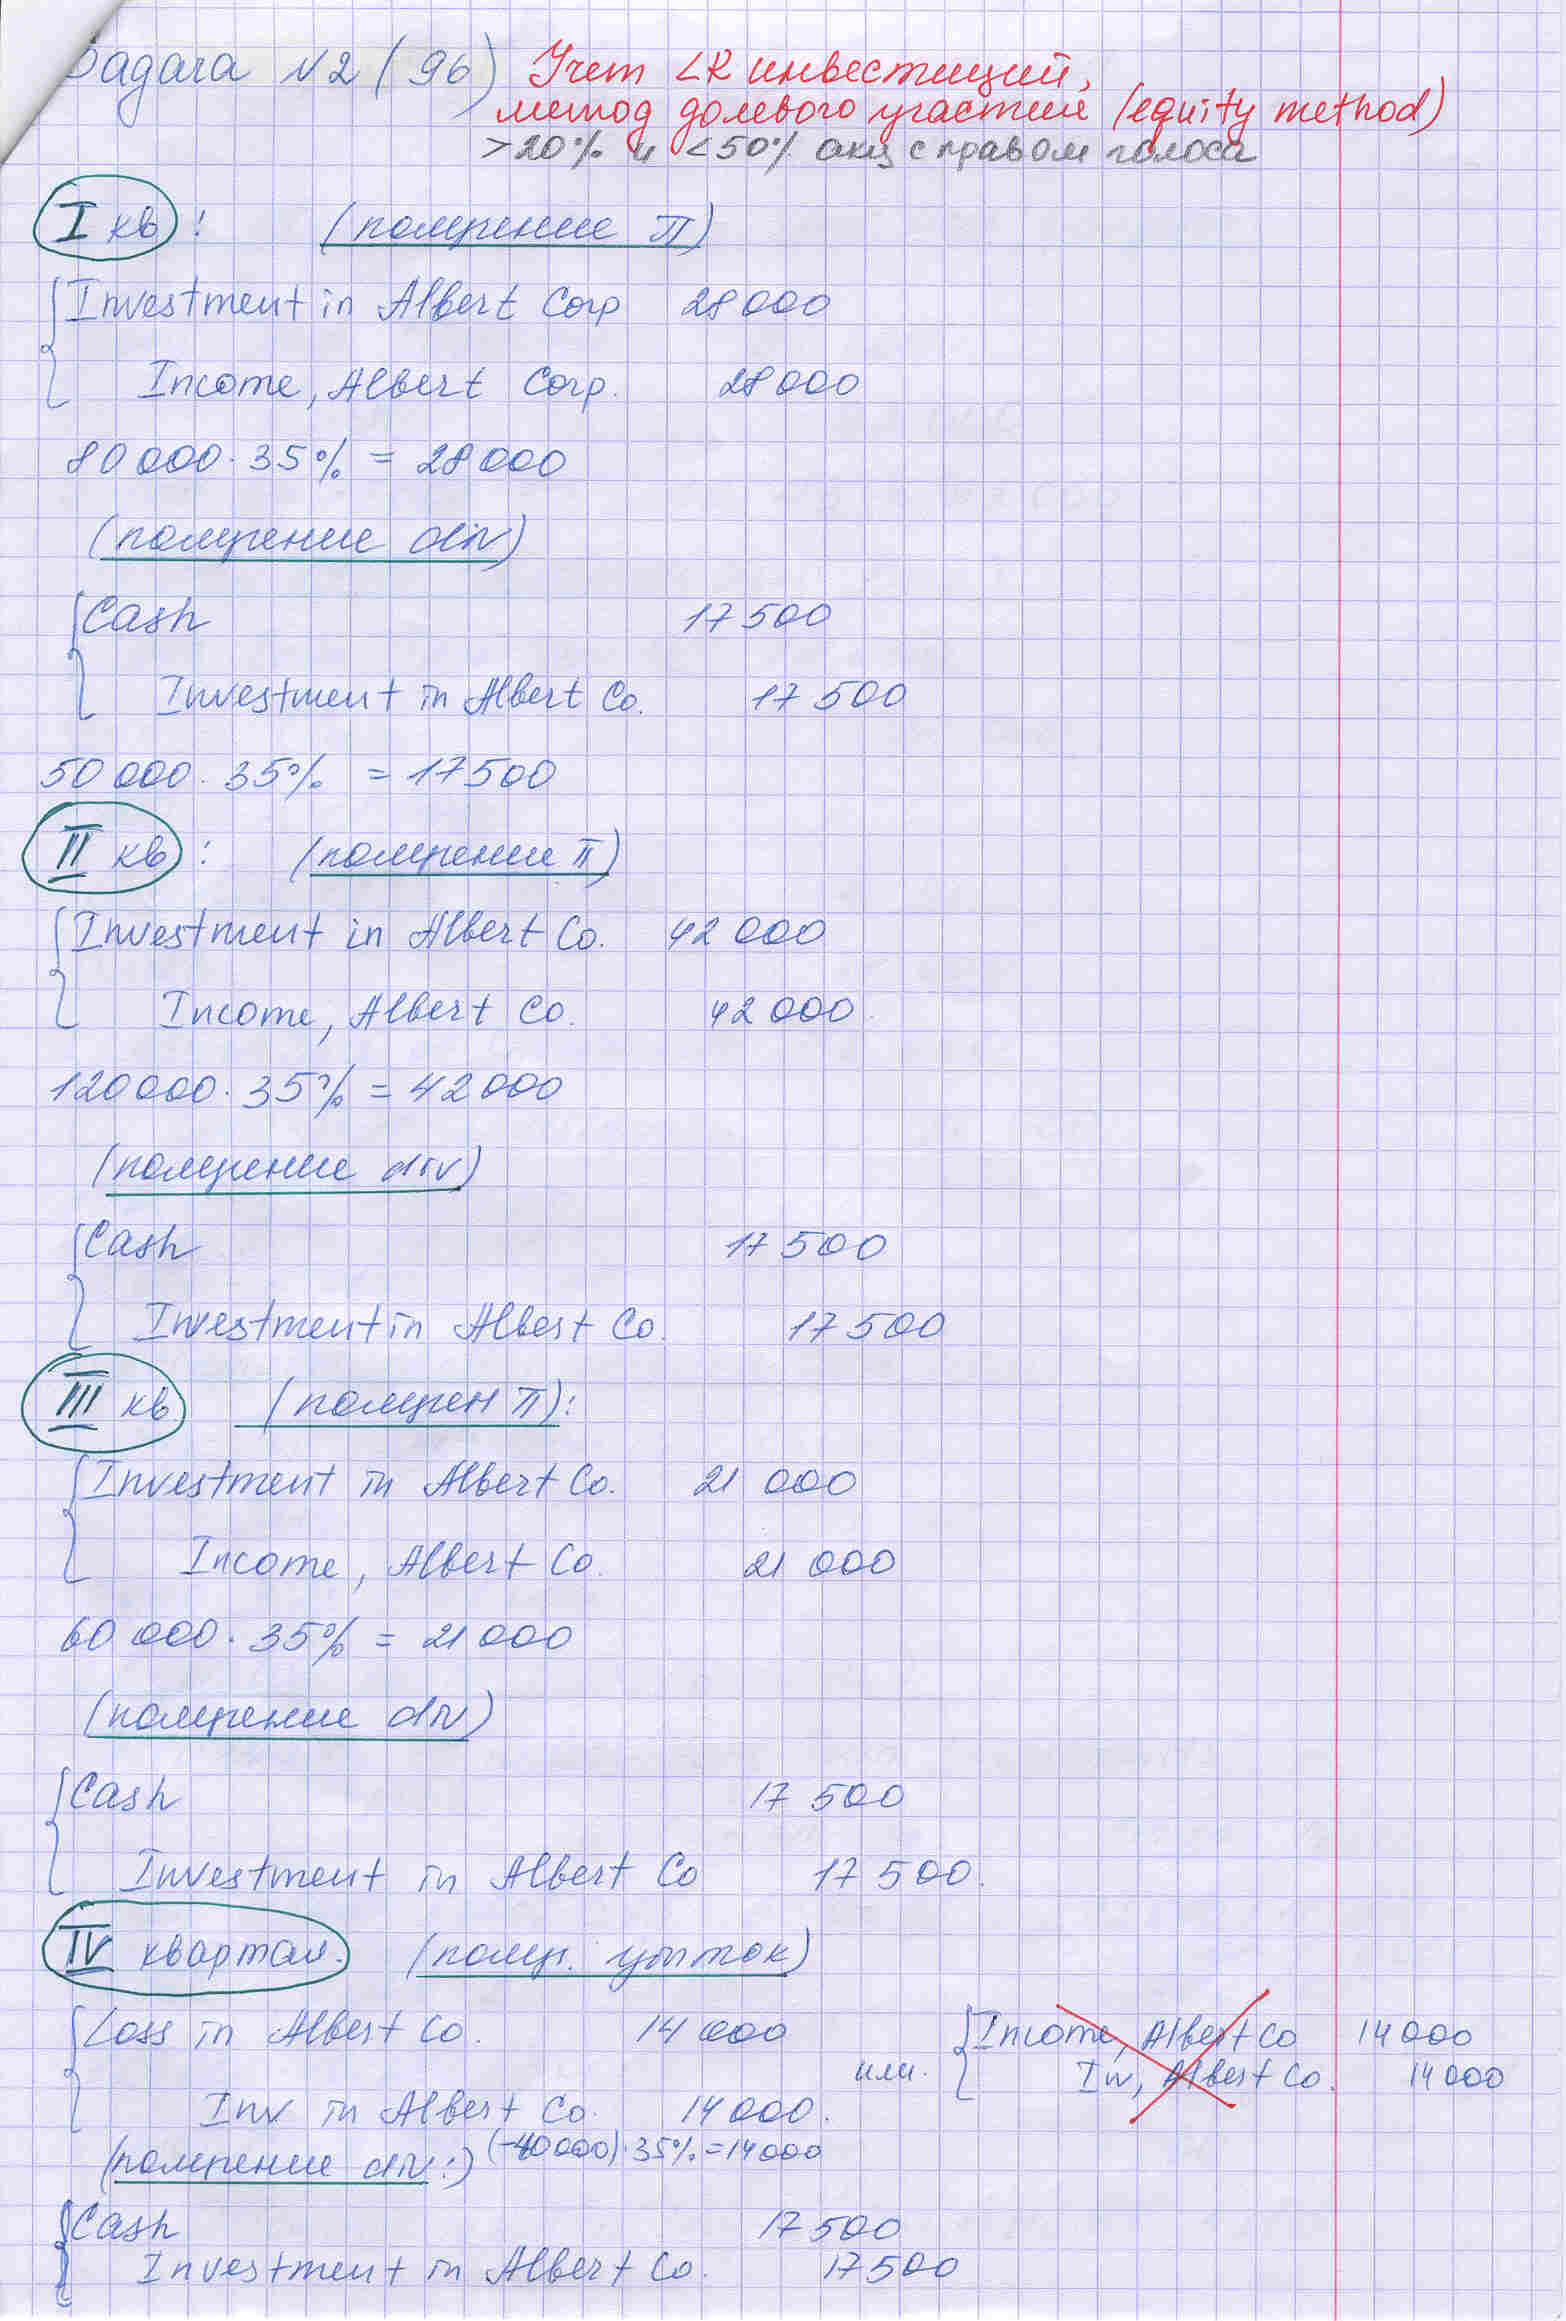 Задача №2 (96) Учет LR инвестиций,
метод долевого участия (equity method)
>20% и <50% акц с правом голоса
I кв: (получение П)
Investment in Albert Corp 28000
Income, Albert Corp. 28000
80 000 · 35% = 28000
(получение div)
Cash 17 500
Investment in Albert Co. 17 500
50 000 · 35% = 17500
II кв: (получение П)
Investment in Albert Co. 42 000
Income, Albert Co. 42 000
120 000 · 35% = 42000
(получение div)
Cash 17 500
Investment in Albert Co. 17 500
III кв (получен П):
Investment in Albert Co. 21 000
Income, Albert Co. 21 000
60 000 · 35% = 21000
(получение div)
Cash 17 500
Investment in Albert Co 17 500.
IV квартал. (получ. убыток)
Loss in Albert Co. 14 000
или. Income, Albert Co 14 000
Inv, Albert Co. 14 000
Inv in Albert Co. 14 000.
(получение div:) (-40 000) · 35% = 14000
Cash 17 500
Investment in Albert Co. 17 500